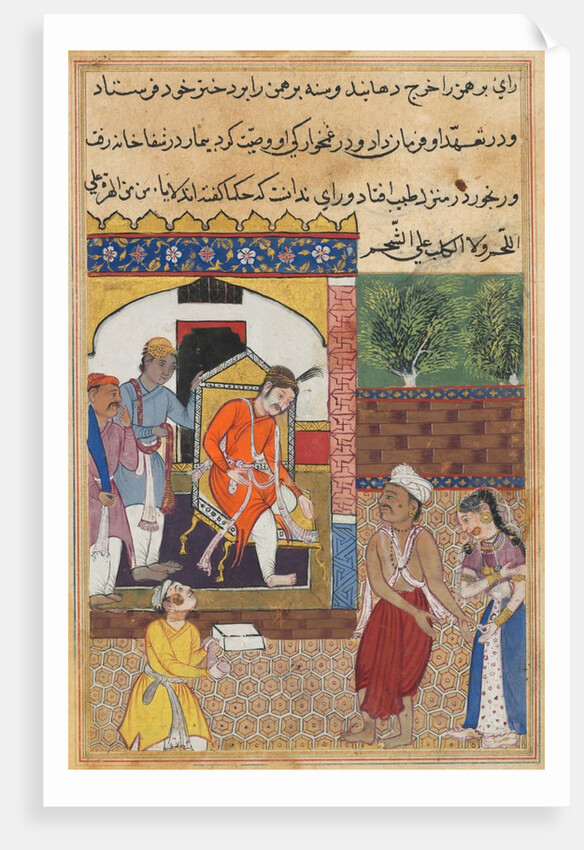 رای برهمن را خرج دهانید و سنه برهمن را بر دختر خود فرستاد
و در تعهد او فرمان داد و در غمخوارکی او وصیت کرد بیمار در شفاخانه رفت
و رنجور در منزل طبیب افتاد و رای ندانست که حکما کفته اند لایامن من الهرة علی
اللحم ولا الکلب علی الشحم